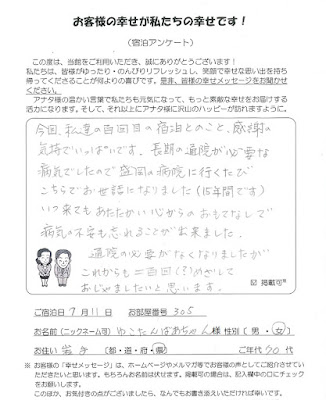 お客様の幸せが私たちの幸せです！
（宿泊アンケート）
この度は、当館をご利用いただき、誠にありがとうございます！
私たちは、皆様がゆったり・のんびりリフレッシュし、笑顔で幸せな思い出を持ち
帰ってくださることが何よりの喜びです。是非、皆様の幸せメッセージをお聞かせ
ください。
アナタ様の温かい言葉で私たちも元気になって、もっと素敵な幸せをお届けする
活力になります。そして、それ以上にアナタ様に沢山のハッピーが訪れますように。
今回、私達の百回目の宿泊とのこと、感謝の
気持でいっぱいです。長期の通院が必要な
病気でしたので盛岡の病院に行くたび
こちらでお世話になりました（15年間です）
いつ来てもあたたかい心からのおもてなしで
病気の不安も忘れることが出来ました。
通院の必要がなくなりましたが
これからも二百回（？）めざして
おじゃましたいと思います。
☑ 掲載可
ご宿泊日 7月11日 お部屋番号 305
お名前（ニックネーム可） ゆこたんばあちゃん 様 性別（ 男 ・ 女 ）
お住い 岩手 （都・道・府・県） ご年代 70 代
※ お客様の「幸せメッセージ」は、ホームページやメルマガ等でお客様の声としてご紹介させていただ
きたいと思います。もちろんお名前は伏せます。掲載可の場合は、記入欄中の口にチェック
をお願いします。
このほか、お気付きの点がございましたら、なんでもお書き添えいただければ幸いです。